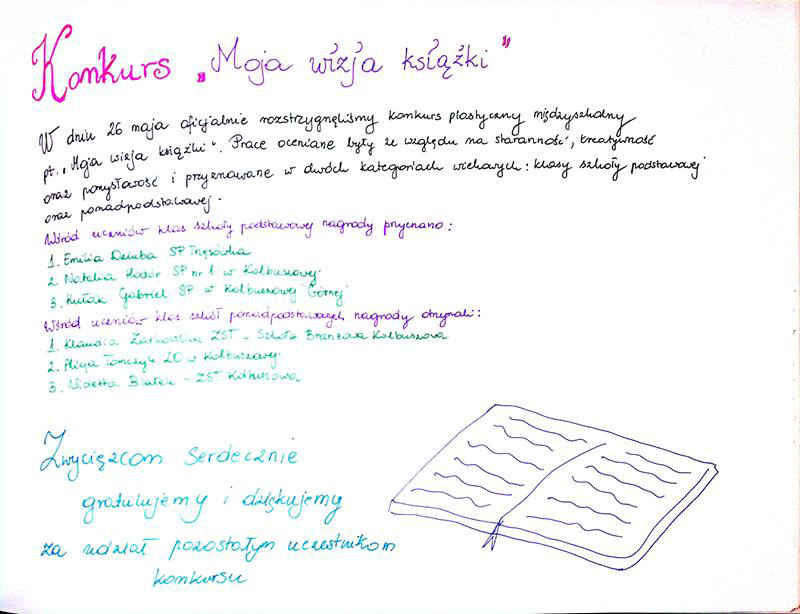 Konkurs „Moja wizja książki”
W dniu 26 maja oficjalnie rozstrzygnęliśmy konkurs plastyczny międzyszkolny
pt. „Moja wizja książki”. Prace oceniane były ze względu na staranność, kreatywność
oraz pomysłowość i przyznawane w dwóch kategoriach wiekowych: klasy szkoły podstawowej
oraz ponadpodstawowej.
Wśród uczniów klas szkoły podstawowej nagrody przyznano:
1. Emilia Dziuba SP Trzęsówka
2. Natalia Hodór SP nr 1 w Kolbuszowej
3. Kułak Gabriel SP w Kolbuszowej Górnej
Wśród uczniów klas szkół ponadpodstawowych nagrody otrzymali:
1. Klaudia Żarkowska ZST – Szkoła Branżowa Kolbuszowa
2. Alicja Tomczyk LO w Kolbuszowej
3. Wioletta Białek – ZST Kolbuszowa
Zwycięzcom serdecznie
gratulujemy i dziękujemy
za udział pozostałym uczestnikom
konkursu